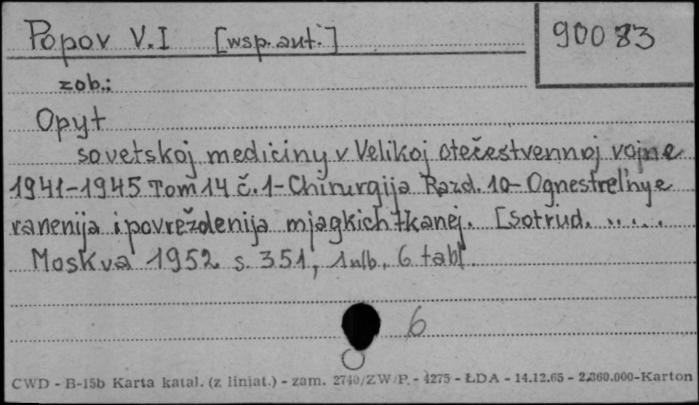 Popov V.I [wsp. aut.]
90083
zob.:
Opyt
sovetskoj mediciny v Velikoj otečestvennoj vojne
1941-1945 Tom 14 č.1-Chirurgija Razd. 10-Ognestrel'nye
ranenija i povreždenija mjagkich tkanej. [sotrud. .....
Moskva 1952 s. 351, 1 nlb., 6 tabl.
6
CWD - B-15b Karta katal. (z liniat.) - zam. 2740/ZW/P. - 4275 - ŁDA - 14.12.65 - 2.360.000-Karton